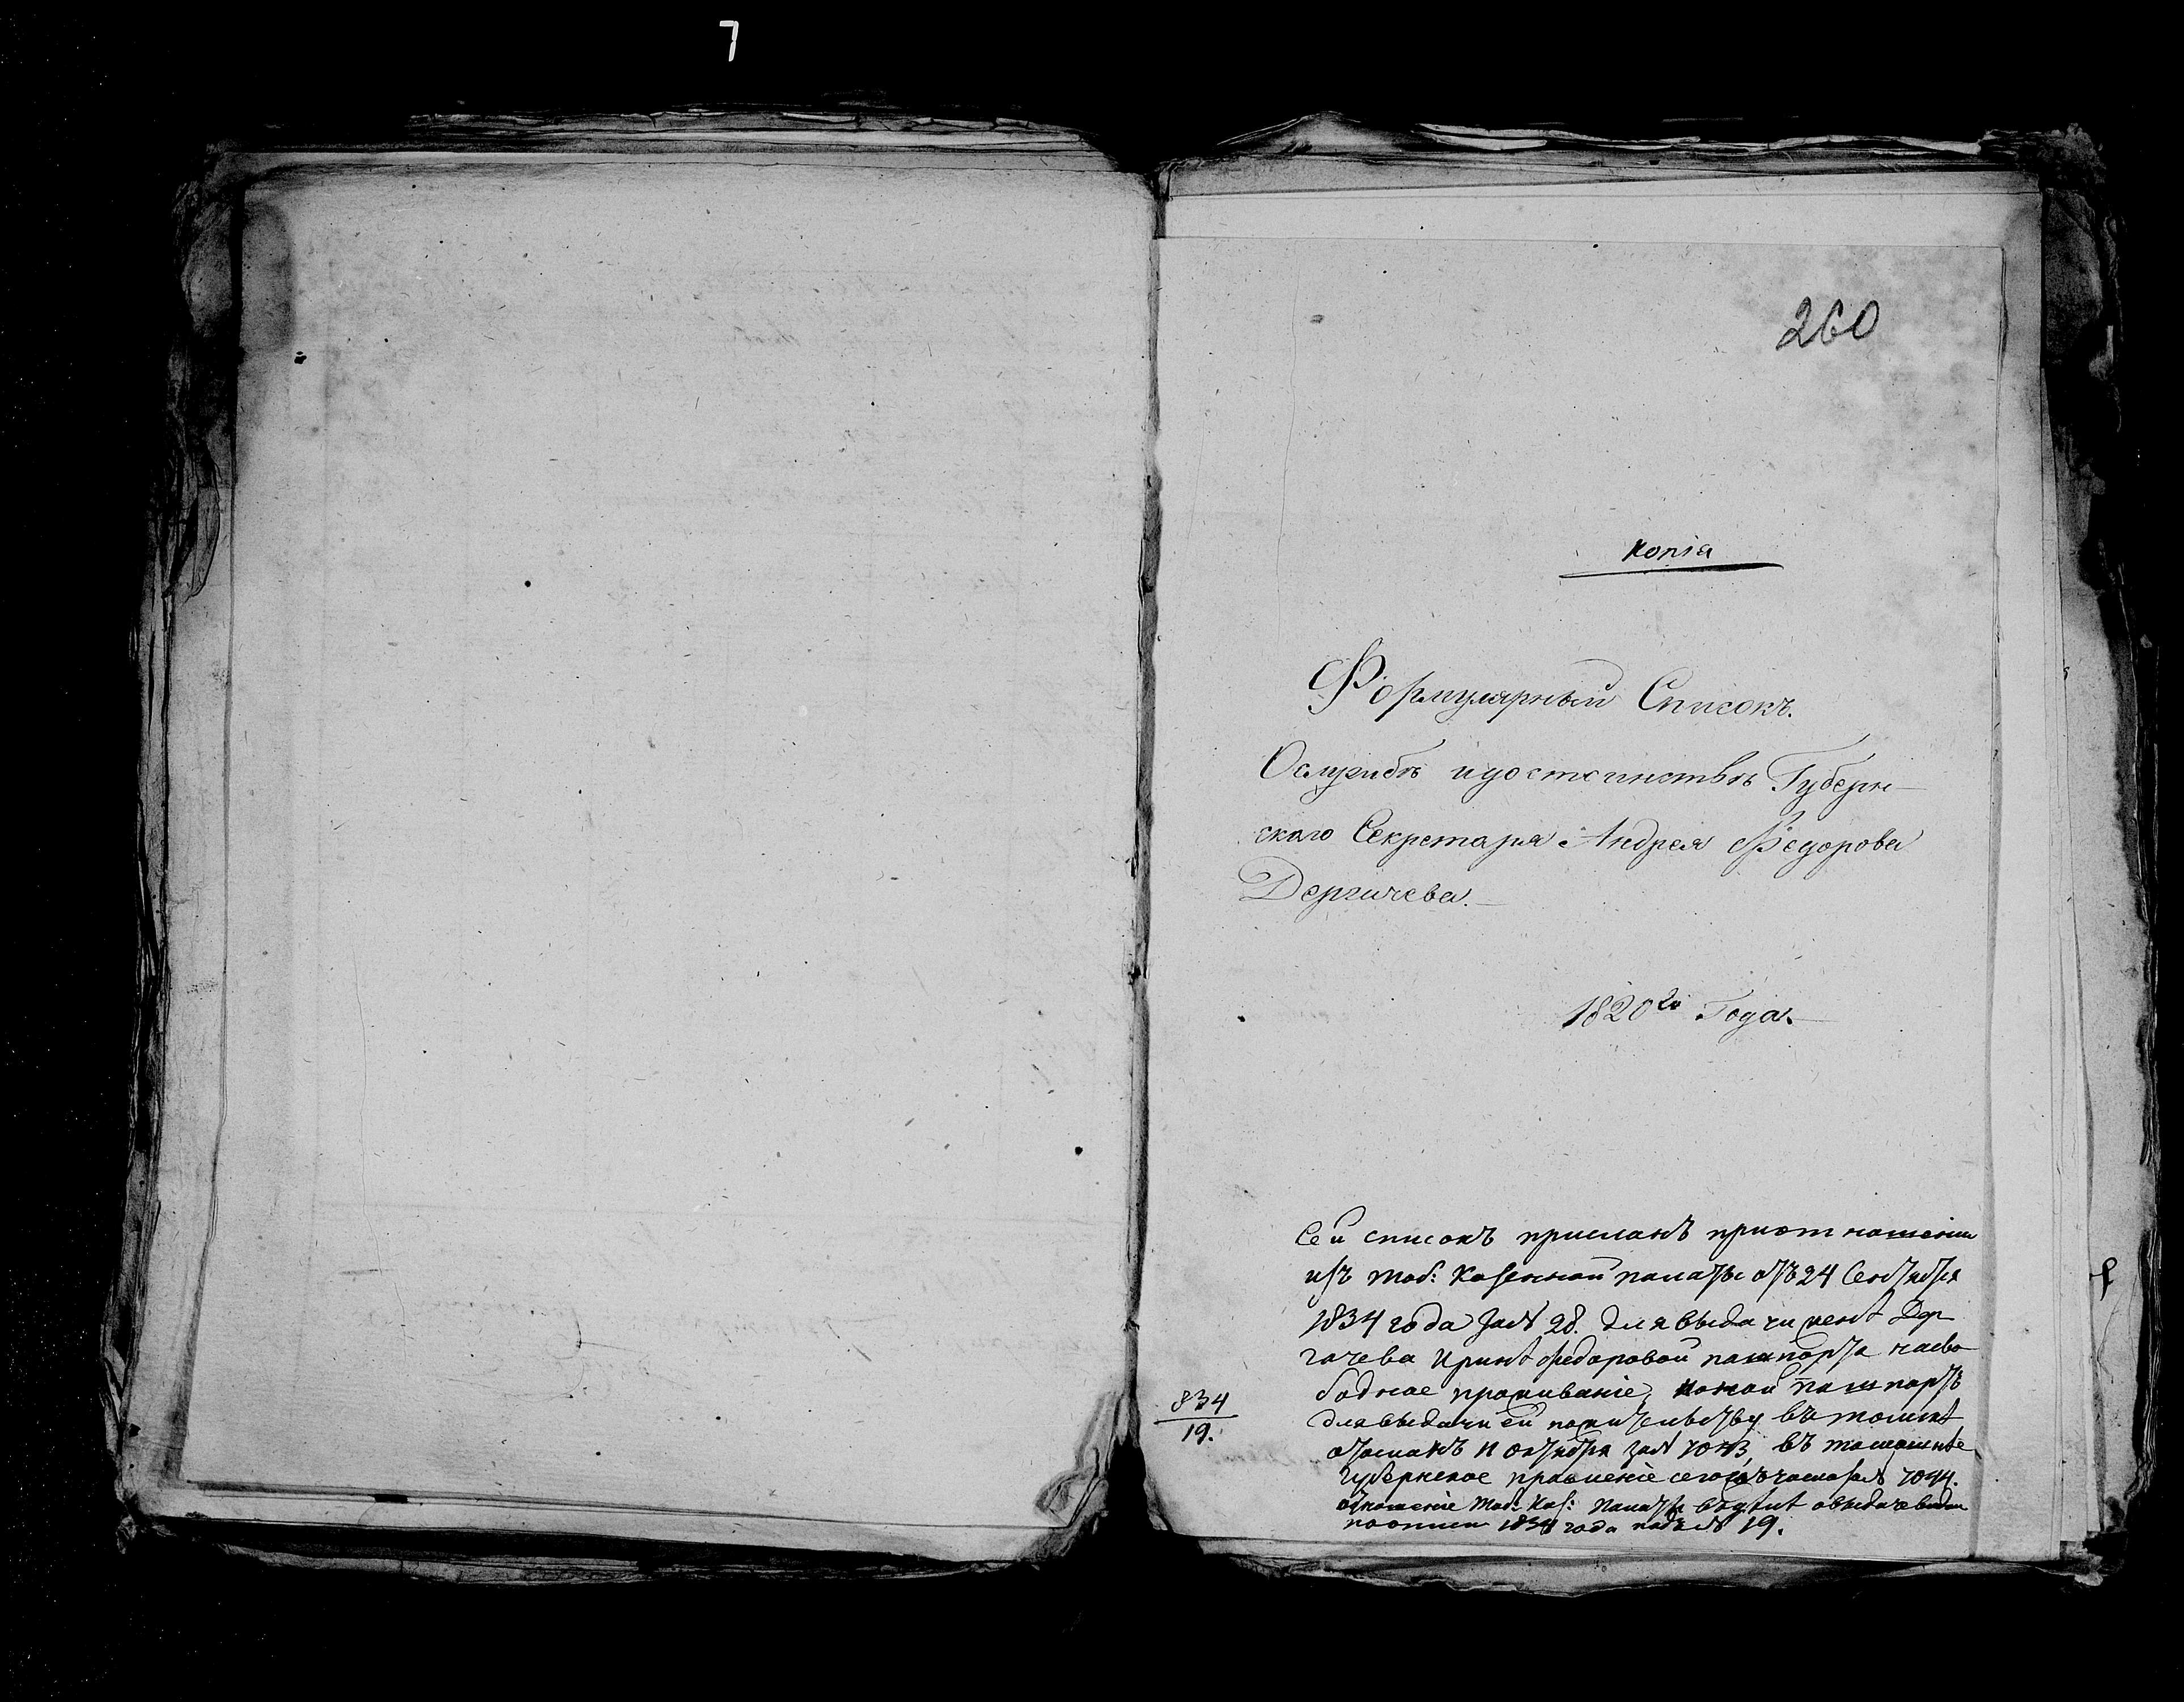 7
260
Копія
Формулярный Списокъ.
Ослужбѣ идостоинствѣ Губерн-
скаго Секретаря Андрея Федорова
Дергачева.
1820го Года.
Сей списокъ присланъ приотношеніи
изъ Тоб: Казенной палаты отъ 24 Сентября
1834 года за № 28. для выдачи женѣ Дер
гачева Иринѣ Федоровой пашпорта насво
бодное проживаніе, коной пашпортъ
для выдачи ей пожительству въ Томскѣ
отосланъ 11 октября за №, въ
Губернское правленіе сегожъ числа за №
отношеніе Тоб: Каз: Палаты овыдаче
поописи 1834 года подъ № 19.
834
19.